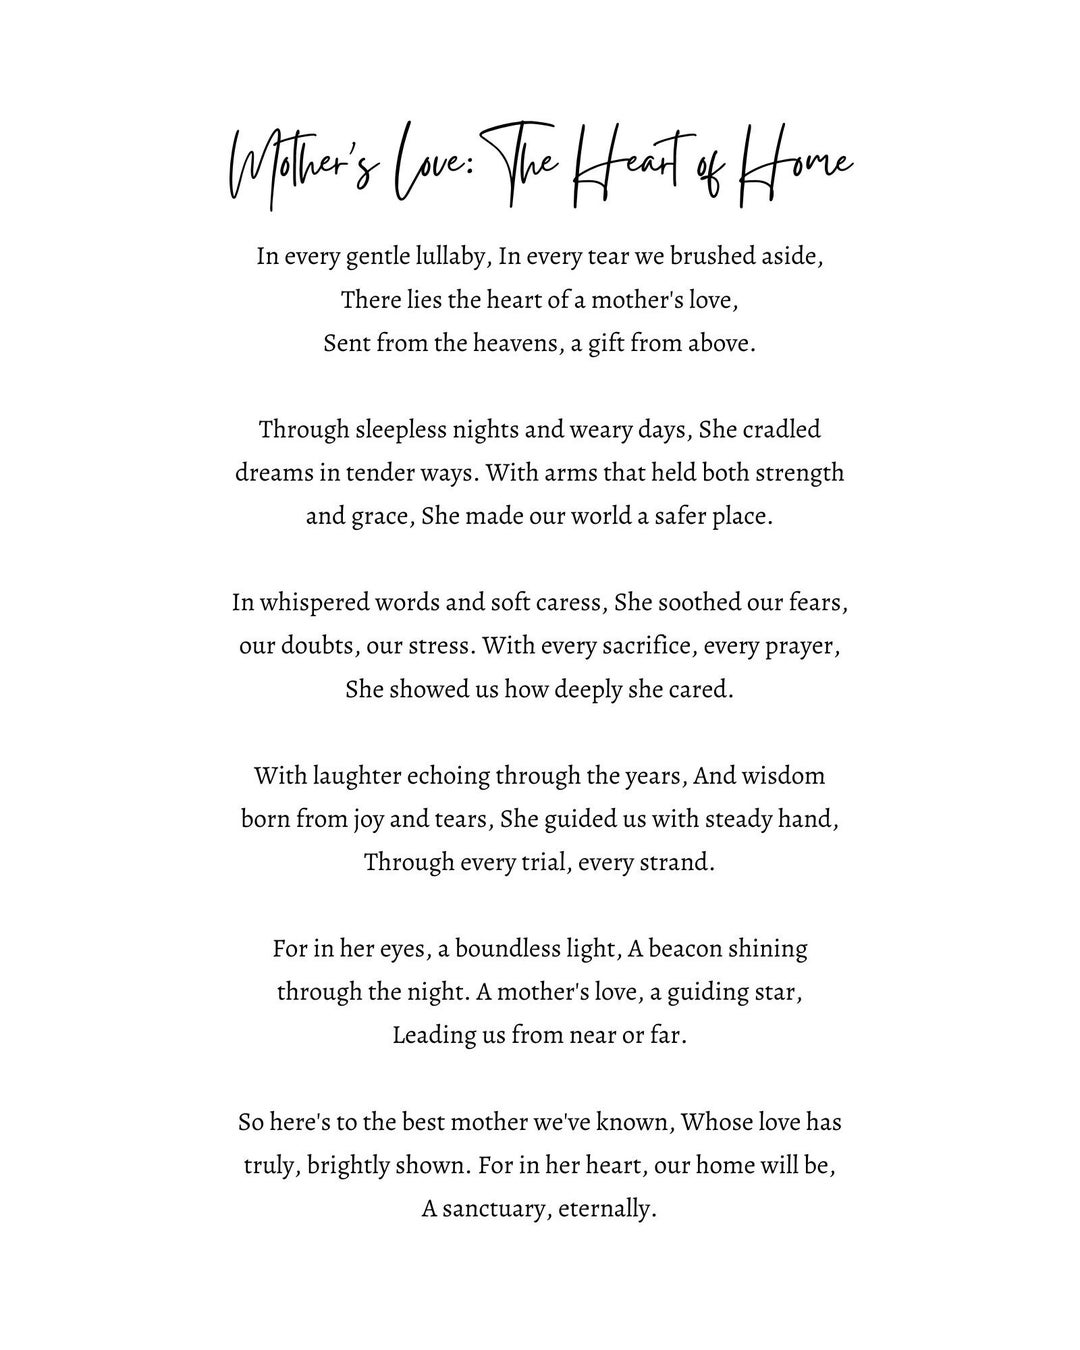 Mother's Love: The Heart of Home
In every gentle lullaby, In every tear we brushed aside,
There lies the heart of a mother's love,
Sent from the heavens, a gift from above.
Through sleepless nights and weary days, She cradled
dreams in tender ways. With arms that held both strength
and grace, She made our world a safer place.
In whispered words and soft caress, She soothed our fears,
our doubts, our stress. With every sacrifice, every prayer,
She showed us how deeply she cared.
With laughter echoing through the years, And wisdom
born from joy and tears, She guided us with steady hand,
Through every trial, every strand.
For in her eyes, a boundless light, A beacon shining
through the night. A mother's love, a guiding star,
Leading us from near or far.
So here's to the best mother we've known, Whose love has
truly, brightly shown. For in her heart, our home will be,
A sanctuary, eternally.